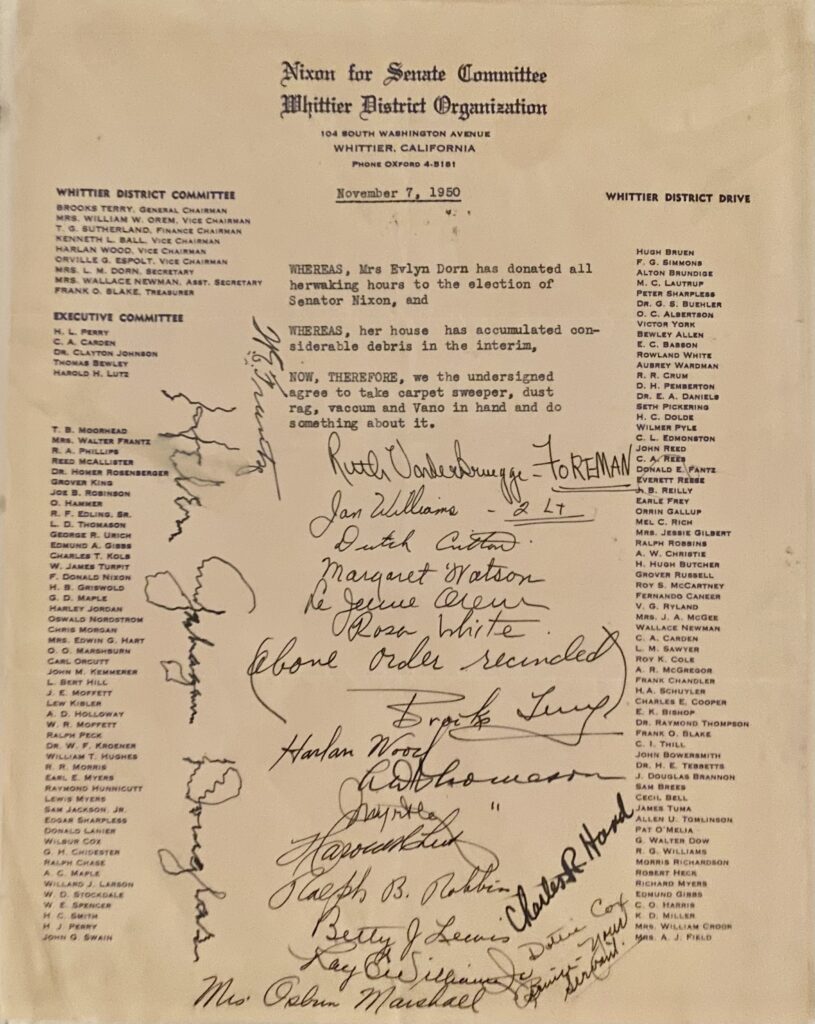 Nixon for Senate Committee
Whittier District Organization
104 SOUTH WASHINGTON AVENUE
WHITTIER, CALIFORNIA
PHONE OXFORD 4-5181
November 7, 1950
WHITTIER DISTRICT COMMITTEE
BROOKS TERRY, GENERAL CHAIRMAN
MRS. WILLIAM W. OREM, VICE CHAIRMAN
T. G. SUTHERLAND, FINANCE CHAIRMAN
KENNETH L. BALL, VICE CHAIRMAN
HARLAN WOOD, VICE CHAIRMAN
ORVILLE G. ESPOLT, VICE CHAIRMAN
MRS. L. M. DORN, SECRETARY
MRS. WALLACE NEWMAN, ASST. SECRETARY
FRANK O. BLAKE, TREASURER
EXECUTIVE COMMITTEE
H. L. PERRY
C. A. CARDEN
DR. CLAYTON JOHNSON
THOMAS BEWLEY
HAROLD H. LUTZ
T. B. MOORHEAD
MRS. WALTER FRANTZ
R. A. PHILLIPS
REED MCALLISTER
DR. HOMER ROSENBERGER
GROVER KING
JOE B. ROBINSON
O. HAMMER
R. F. EDLING, SR.
L. D. THOMASON
GEORGE R. URICH
EDMUND A. GIBBS
CHARLES T. KOLB
W. JAMES TURPIT
F. DONALD NIXON
H. B. GRISWOLD
G. D. MAPLE
HARLEY JORDAN
OSWALD NORDSTROM
CHRIS MORGAN
MRS. EDWIN G. HART
O. O. MARSHBURN
CARL ORCUTT
JOHN M. KEMMERER
L. BERT HILL
J. E. MOFFETT
LEW KIBLER
A. D. HOLLOWAY
W. R. MOFFETT
RALPH PECK
DR. W. F. KROENER
WILLIAM T. HUGHES
R. R. MORRIS
EARL E. MYERS
RAYMOND HUNNICUTT
LEWIS MYERS
SAM JACKSON, JR.
EDGAR SHARPLESS
DONALD LANIER
WILBUR COX
G. H. CHIDESTER
RALPH CHASE
A. C. MAPLE
WILLARD J. LARSON
W. D. STOCKDALE
W. E. SPENCER
H. C. SMITH
H. J. PERRY
JOHN G. SWAIN
WHEREAS, Mrs Evlyn Dorn has donated all
herwaking hours to the election of
Senator Nixon, and
WHEREAS, her house has accumulated con-
siderable debris in the interim,
NOW, THEREFORE, we the undersigned
agree to take carpet sweeper, dust
rag, vaccum and Vano in hand and do
something about it.
Ruth Vanderbruegge - FOREMAN
Jan Williams - 2 Lt
Dutch
Margaret Watson
Le Jeune Orem
Rosa White
(above order recinded)
Brooks Terry
Harlan Wood
Thomason
Myrtle "
Harold Lutz
Ralph B. Robbins
Betty J Lewis
Ray Williams Jr
Mrs. Osburn Marshall
Charles R. Hand
Cox
Your
Servant.
W S Frantz
Helen Gahagan Douglas
WHITTIER DISTRICT DRIVE
HUGH BRUEN
F. G. SIMMONS
ALTON BRUNDIGE
M. C. LAUTRUP
PETER SHARPLESS
DR. G. S. BUEHLER
O. C. ALBERTSON
VICTOR YORK
BEWLEY ALLEN
E. C. BABSON
ROWLAND WHITE
AUBREY WARDMAN
R. R. CRUM
D. H. PEMBERTON
DR. E. A. DANIELS
SETH PICKERING
H. C. DOLDE
WILMER PYLE
C. L. EDMONSTON
JOHN REED
C. A. REES
DONALD E. FANTZ
EVERETT REESE
J. B. REILLY
EARLE FREY
ORRIN GALLUP
MEL C. RICH
MRS. JESSIE GILBERT
RALPH ROBBINS
A. W. CHRISTIE
H. HUGH BUTCHER
GROVER RUSSELL
ROY S. MCCARTNEY
FERNANDO CANEER
V. G. RYLAND
MRS. J. A. MCGEE
WALLACE NEWMAN
C. A. CARDEN
L. M. SAWYER
ROY K. COLE
A. R. MCGREGOR
FRANK CHANDLER
H.A. SCHUYLER
CHARLES E. COOPER
E. K. BISHOP
DR. RAYMOND THOMPSON
FRANK O. BLAKE
C. I. THILL
JOHN BOWERSMITH
DR. H. E. TEBBETTS
J. DOUGLAS BRANNON
SAM BREES
CECIL BELL
JAMES TUMA
ALLEN U. TOMLINSON
PAT O'MELIA
G. WALTER DOW
R. G. WILLIAMS
MORRIS RICHARDSON
ROBERT HECK
RICHARD MYERS
EDMUND GIBBS
C. O. HARRIS
K. D. MILLER
MRS. WILLIAM CROOK
MRS. A. J. FIELD